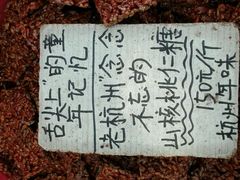 "舌尖上"的童
年记忆
老杭州"念念
不忘的
山核桃仁糖
150元/斤
杭州年味